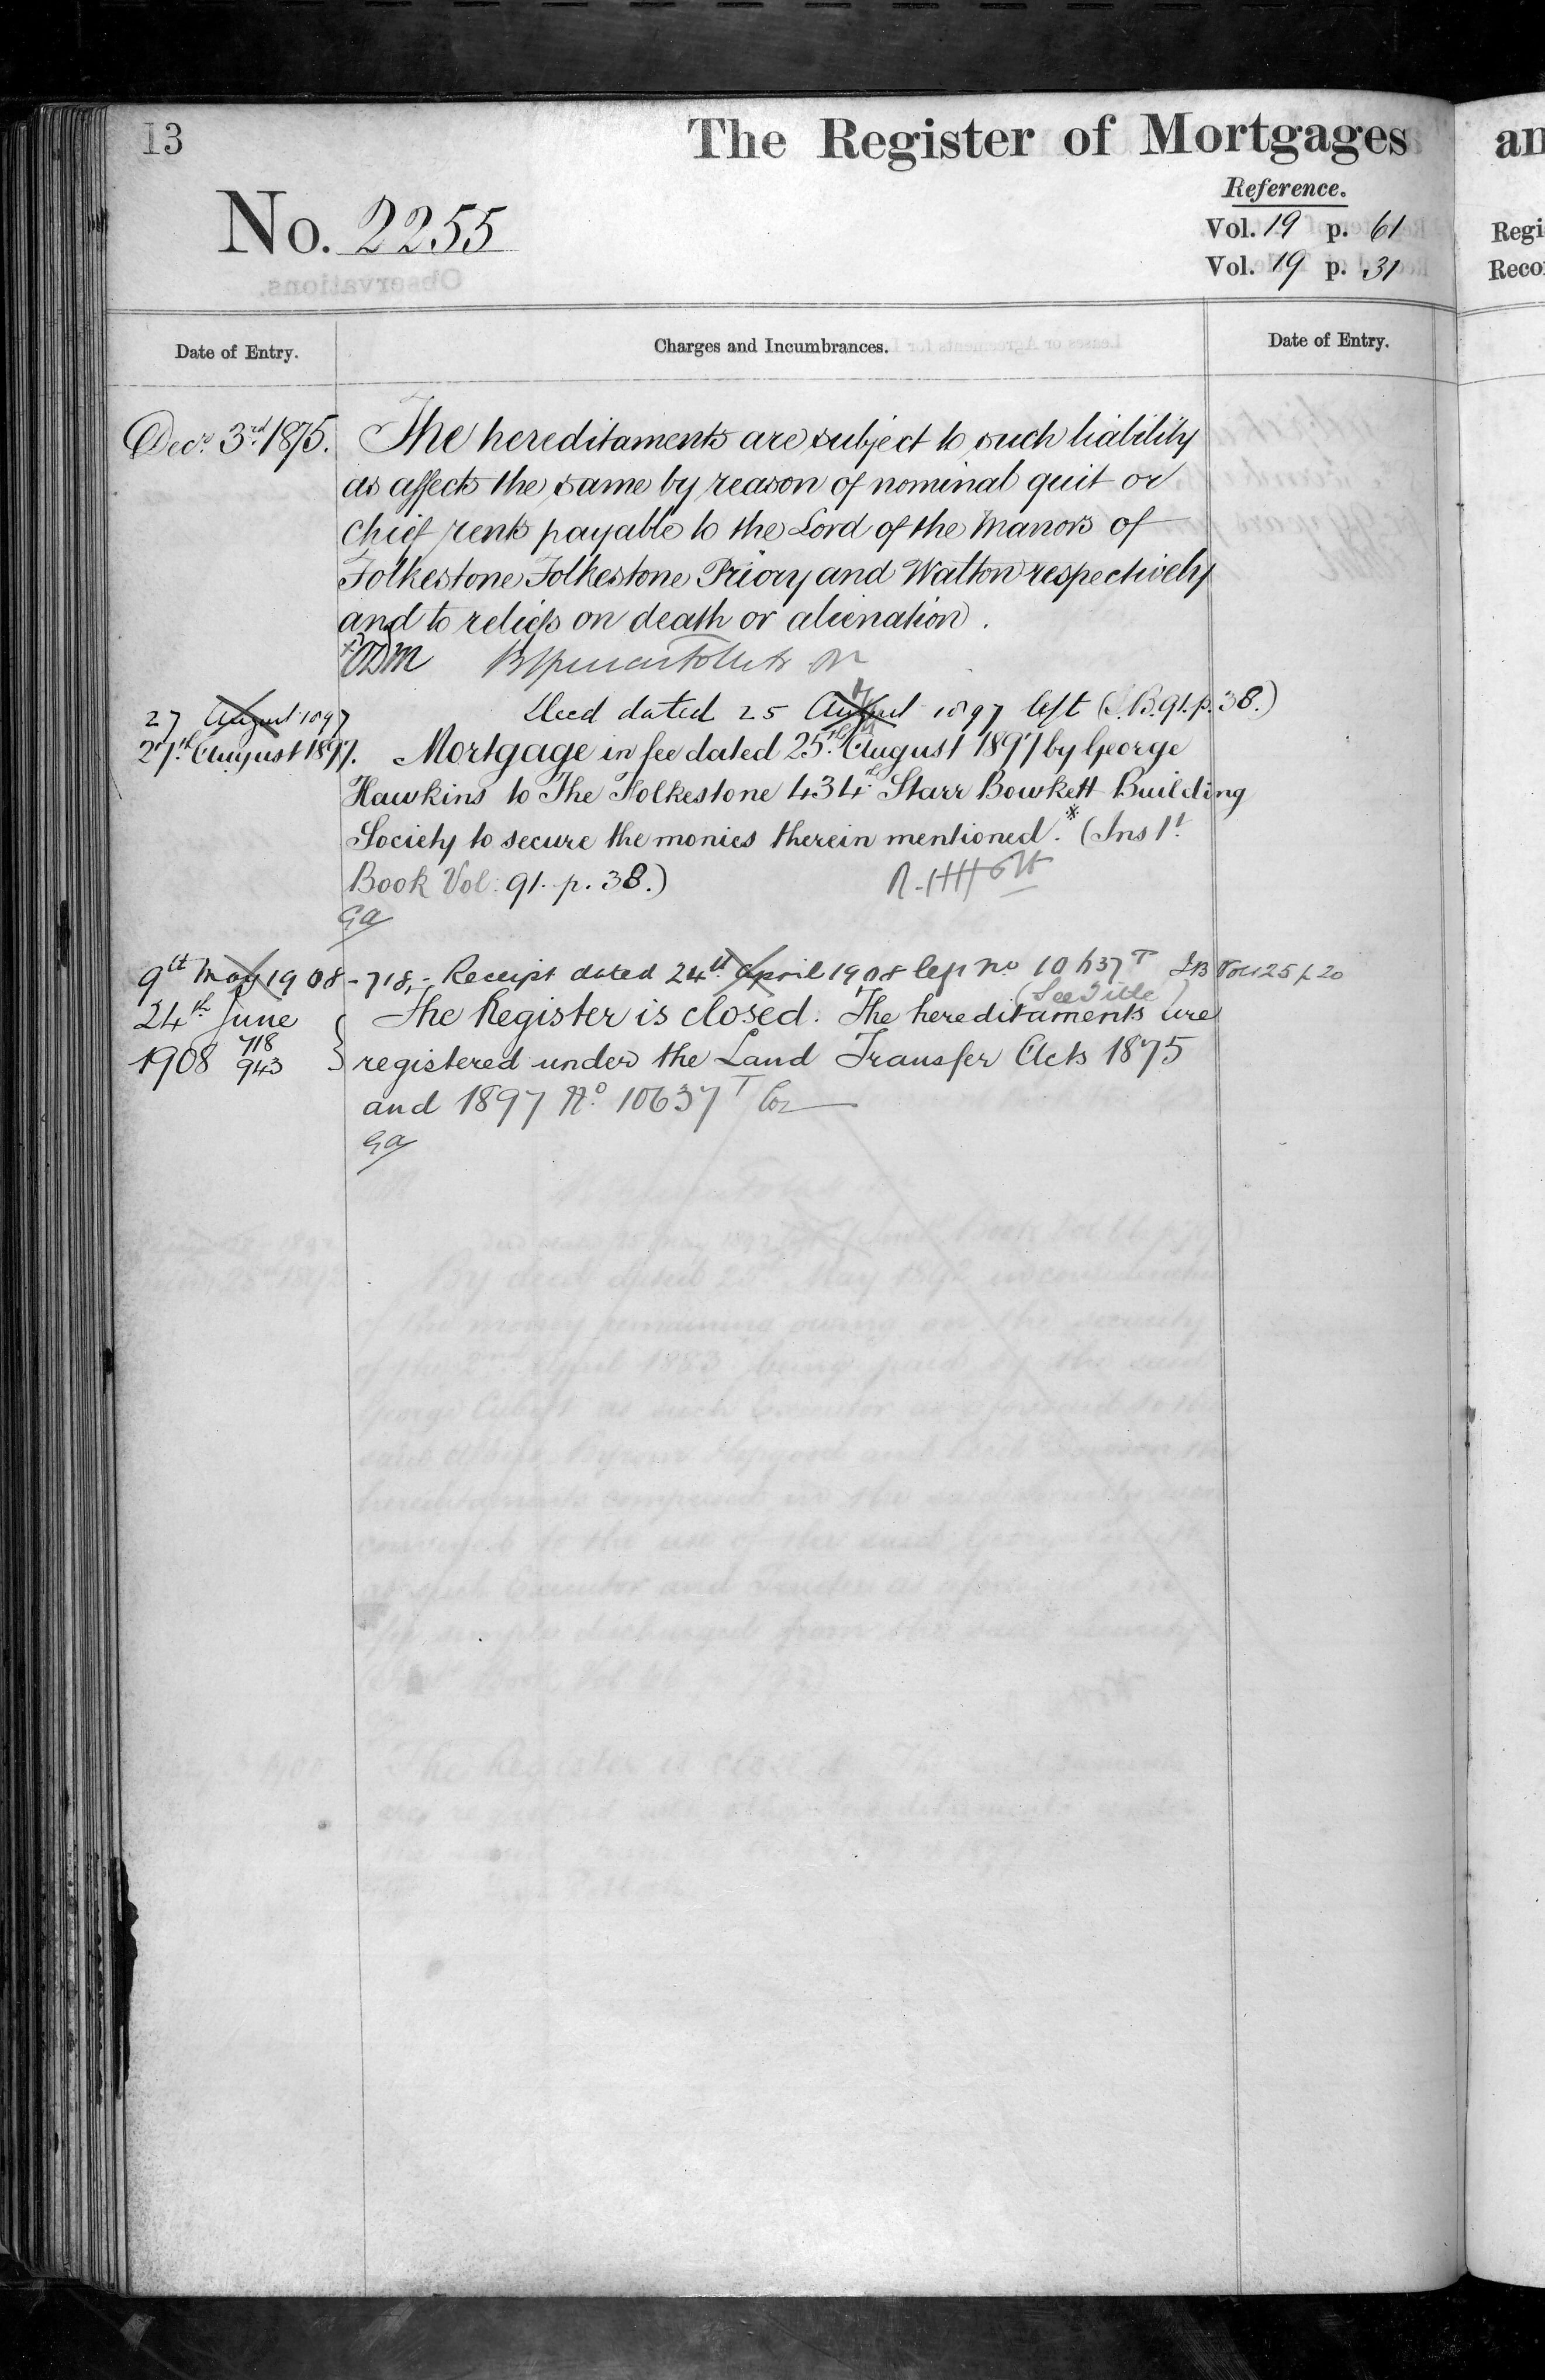 13
The Register of Mortgages
an
Reference.
No. 2255
Vol. 19 p. 61
Vol. 19 p. 31
Regi
Reco
Observations.
Date of Entry.
Charges and Incumbrances.
Date of Entry.
Decr. 3rd 1875.
The hereditaments are subject to such liability
as affects the same by reason of nominal quit or
chief rents payable to the Lord of the Manors of
Folkestone Folkestone Priory and Walton respectively
and to reliefs on death or alienation.
27 August 1897
Deed dated 25 August 1897 left (I.B. 91. p. 38.)
27th August 1897.
Mortgage in fee dated 25th August 1897 by George
Hawkins to The Folkestone 434th Starr Bowkett Building
Society to secure the monies therein mentioned.* (Inst
Book Vol: 91. p. 38.)
GA
9th May 1908 - 718,- Receipt dated 24th April 1908 left no 10637T IB Vol 125 p 20
(See Title)
24th June
The Register is closed. The hereditaments are
1908 718 943
registered under the Land Transfer Acts 1875
and 1897 No 10637T
GA